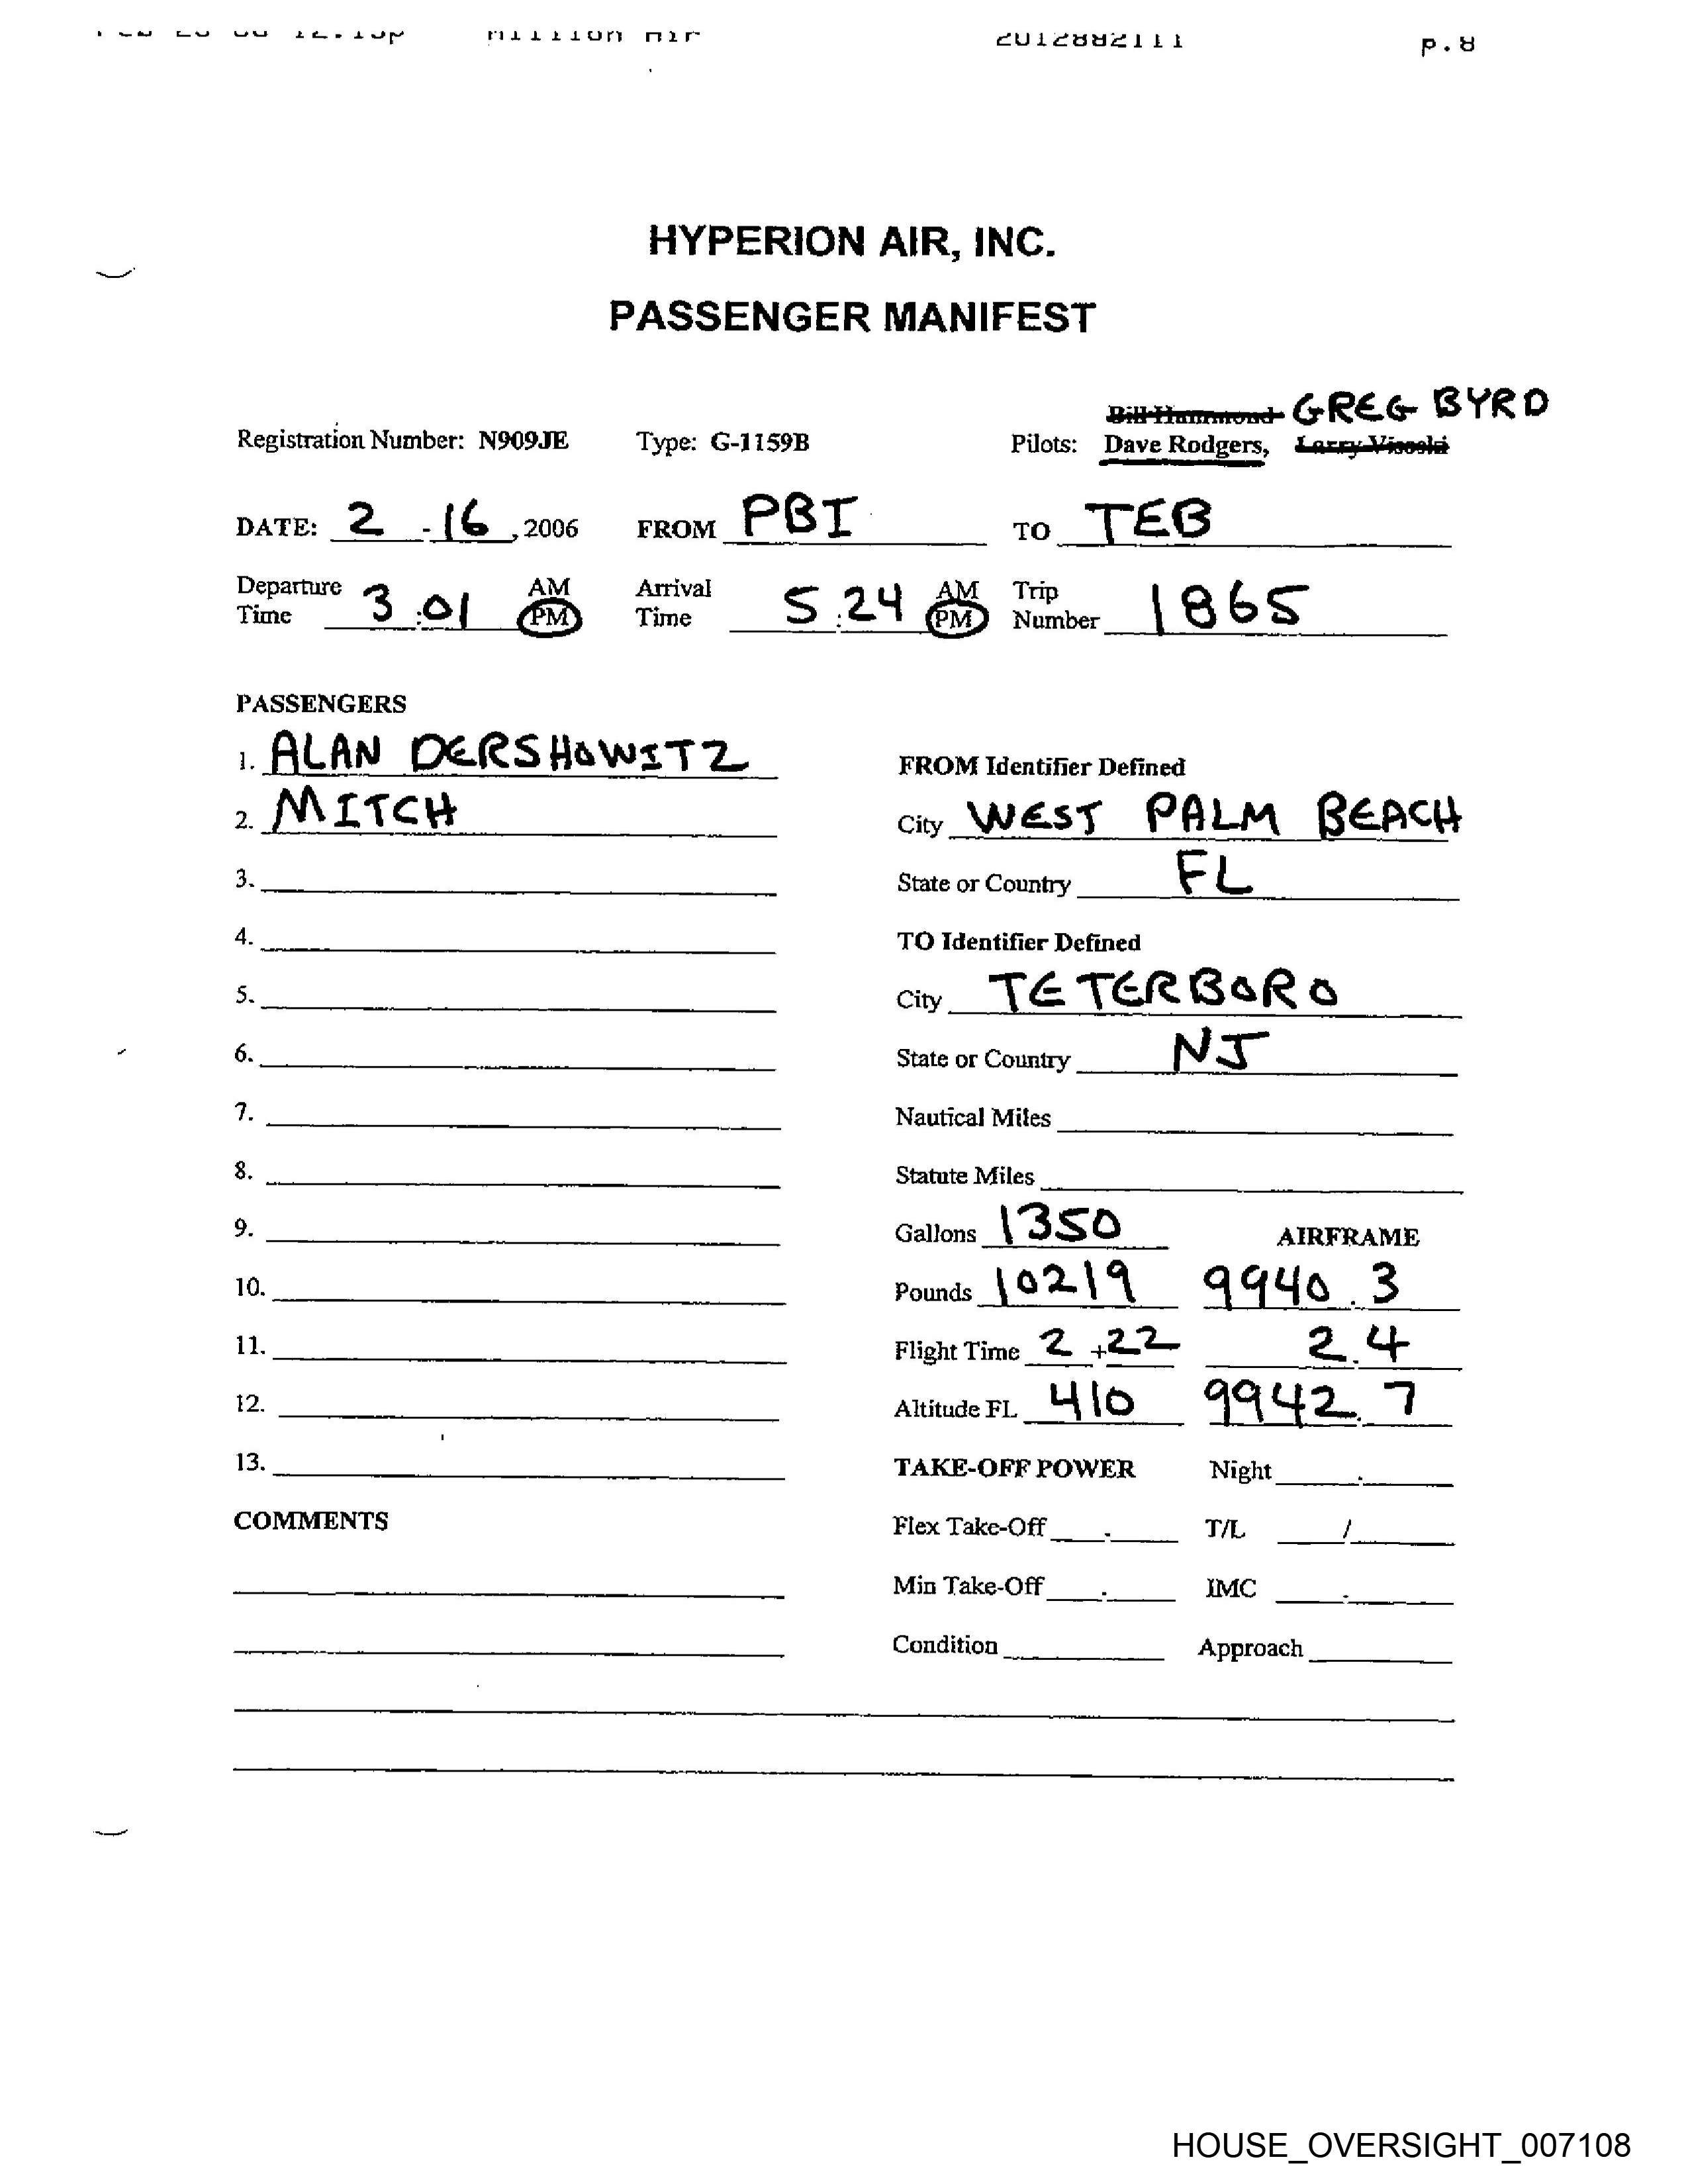 Million Air 2012882111 p.8
HYPERION AIR, INC.
PASSENGER MANIFEST
Bill Hammond GREG BYRD
Registration Number: N909JE Type: G-1159B Pilots: Dave Rodgers, Larry Visoski
DATE: 2 - 16 , 2006 FROM PBI TO TEB
Departure Time 3 : 01 AM PM Arrival Time 5 : 24 AM PM Trip Number 1865
PASSENGERS
1. ALAN DERSHOWITZ FROM Identifier Defined
2. MITCH City WEST PALM BEACH
3. State or Country FL
4. TO Identifier Defined
5. City TETERBORO
6. State or Country NJ
7. Nautical Miles
8. Statute Miles
9. Gallons 1350 AIRFRAME
10. Pounds 10219 9940 . 3
11. Flight Time 2 + 22 2 . 4
12. Altitude FL 410 9942 . 7
13. TAKE-OFF POWER Night .
COMMENTS Flex Take-Off : T/L /
Min Take-Off : IMC .
Condition Approach
HOUSE_OVERSIGHT_007108